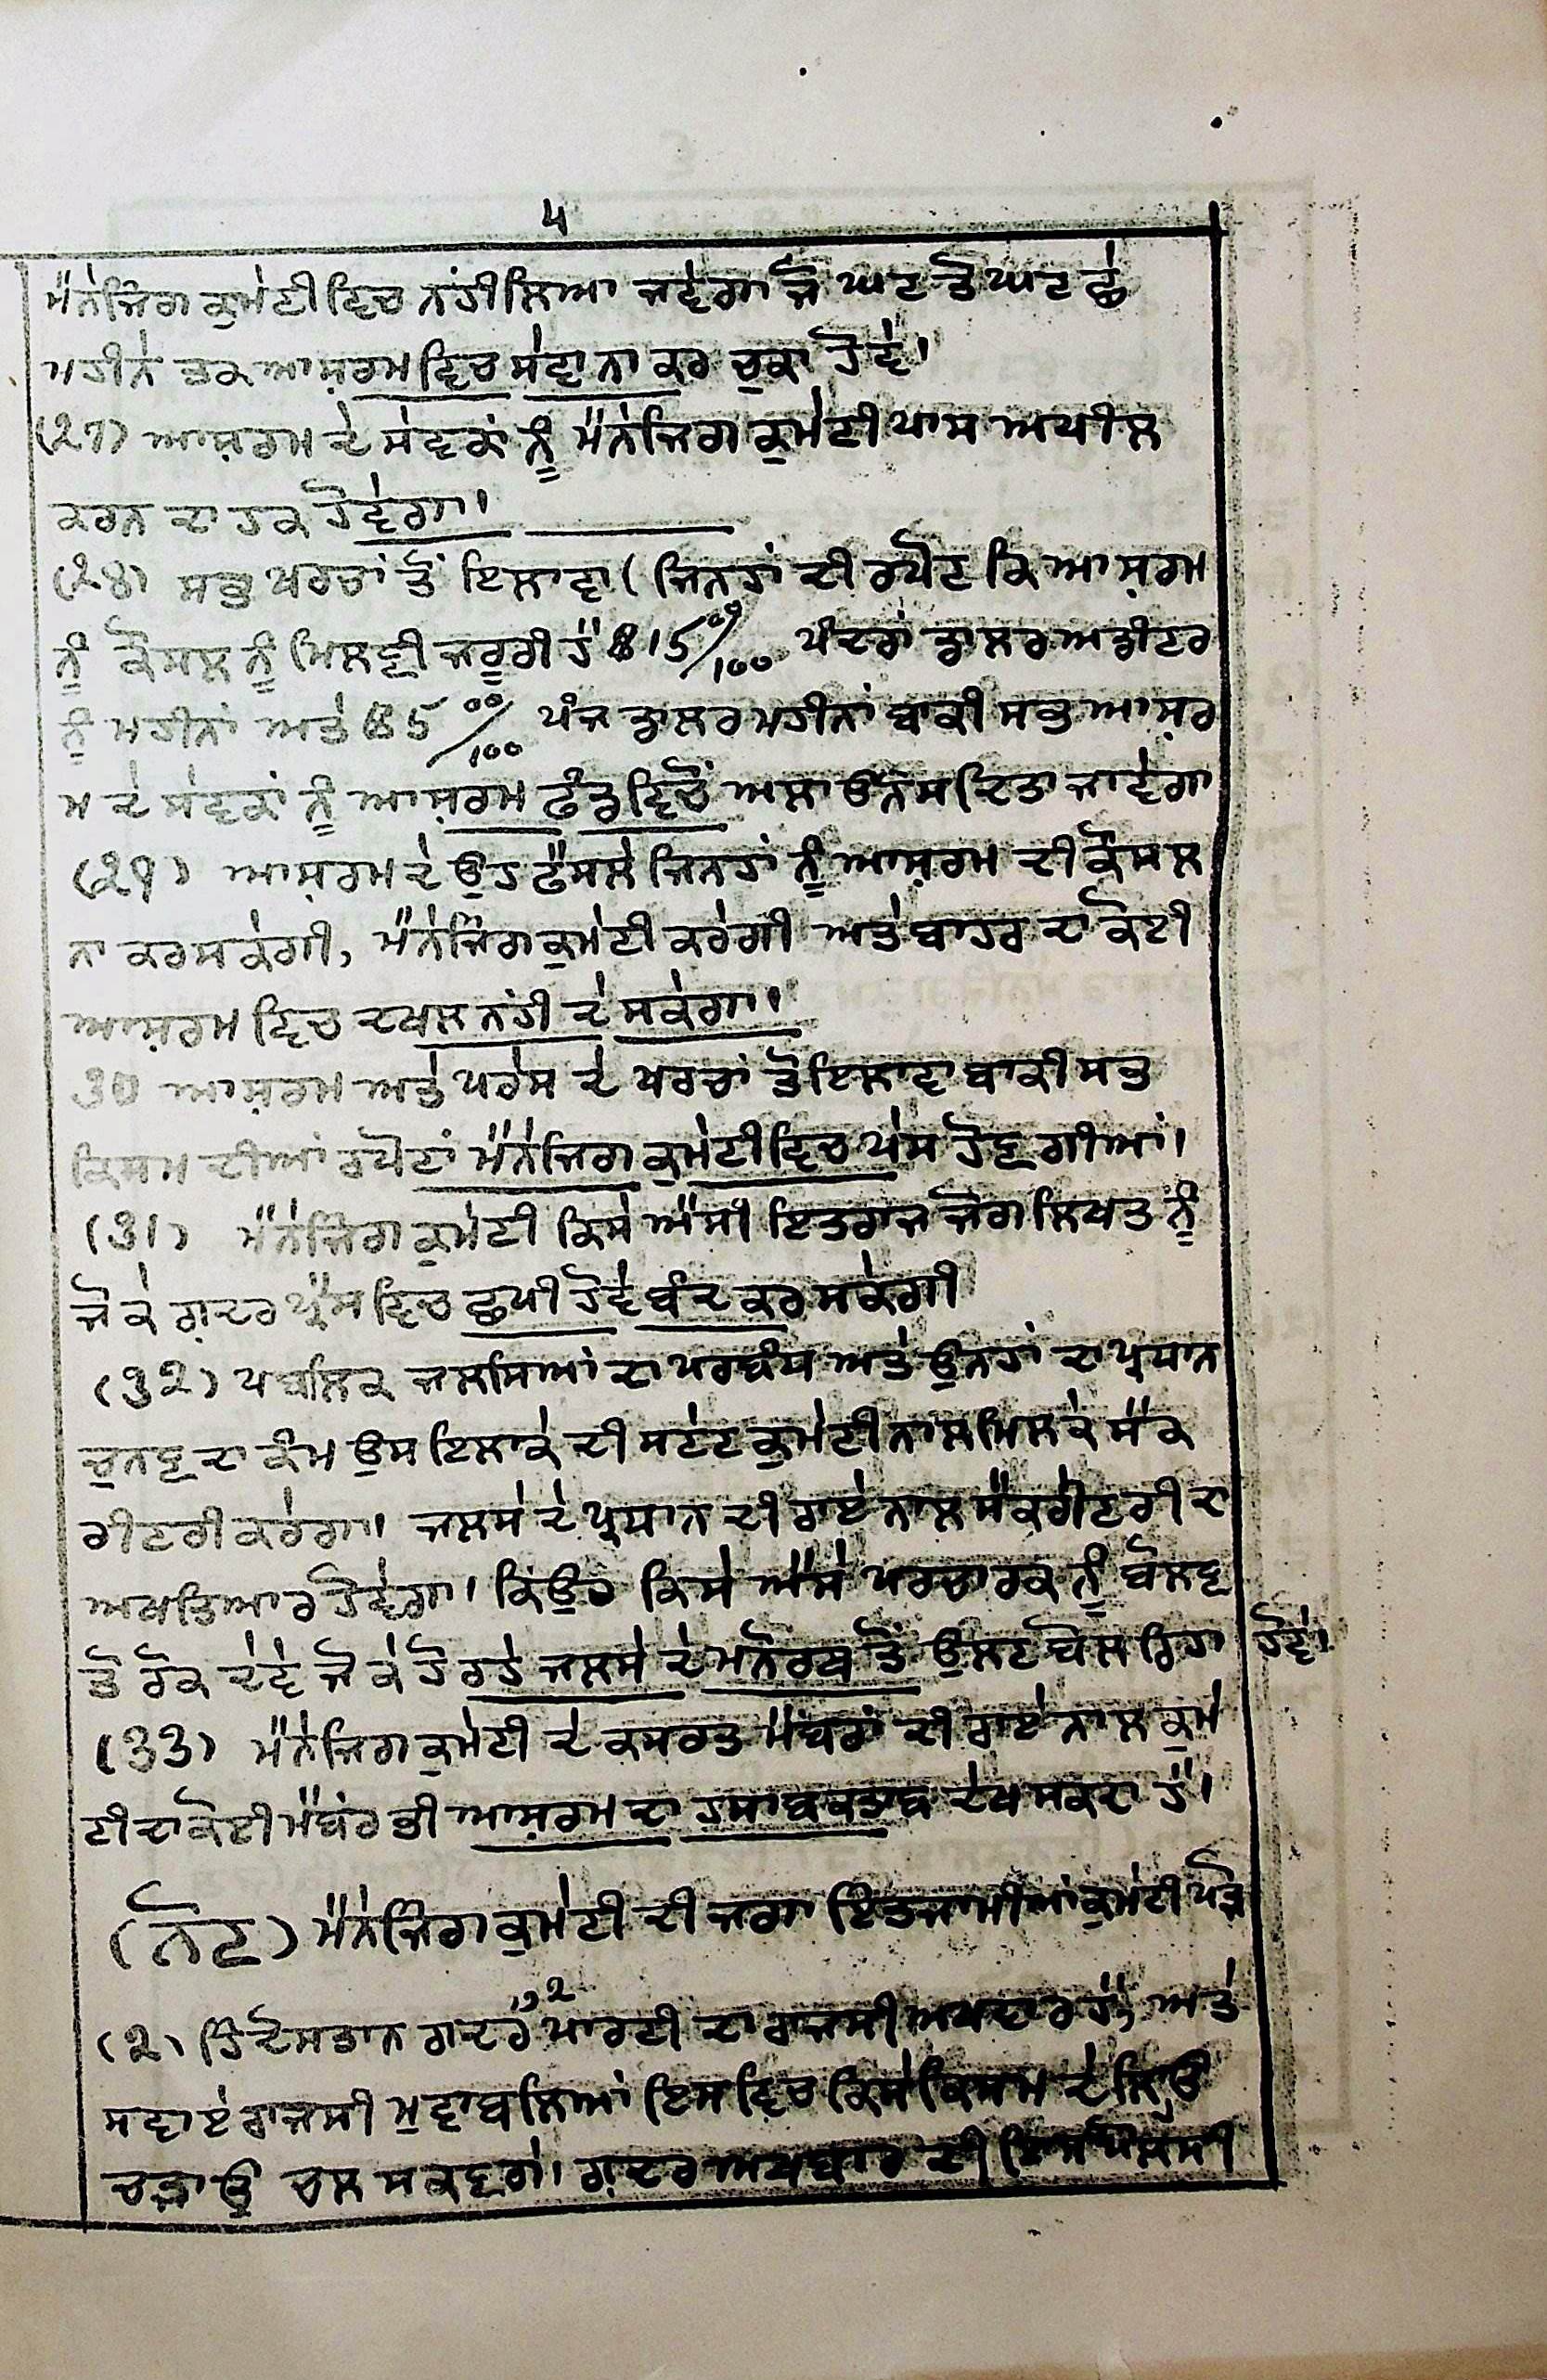 ੫
ਮੈਨੇਜਿੰਗ ਕੁਮੇਟੀ ਵਿਚ ਨਹੀਂ ਲਿਆ ਜਵੇਗਾ ਜੋ ਘਟ ਤੋ ਘਟ ਛੇ
ਮਹੀਨੇ ਤਕ ਆਸ਼ਰਮ ਵਿਚ ਸੇਵਾ ਨਾ ਕਰ ਚੁਕਾ ਹੋਵੇ।
(੨੭) ਆਸ਼ਰਮ ਦੇ ਸੇਵਕਾਂ ਨੂੰ ਮੈਨੇਜਿਗ ਕੁਮੇਟੀ ਪਾਸ ਅਪੀਲ
ਕਰਨ ਦਾ ਹਕ ਹੋਵੇਗਾ।
(੨੮) ਸਭ ਖਰਚਾਂ ਤੋਂ ਇਲਾਵਾ (ਜਿਨਹਾਂ ਦੀ ਰਪੋਟ ਕਿ ਆਸ਼ਰਮ
ਨੂੰ ਕੌਸਲ ਨੂੰ ਮਿਲਣੀ ਜਰੂਰੀ ਹੈ $15 00/100 ਪੰਦਰਾਂ ਡਾਲਰ ਅਡੀਟਰ
ਨੂੰ ਮਹੀਨਾਂ ਅਤੇ $5 00/100 ਪੰਜ ਡਾਲਰ ਮਹੀਨਾਂ ਬਾਕੀ ਸਭ ਆਸ਼ਰ
ਮ ਦੇ ਸੇਵਕਾਂ ਨੂੰ ਆਸ਼ਰਮ ਫੰਡ ਵਿਚੋਂ ਅਲਾਊਨਸ ਦਿਤਾ ਜਾਵੇਗਾ
(੨੯) ਆਸ਼ਰਮ ਦੇ ਉਹ ਫੈਸਲੇ ਜਿਨਹਾਂ ਨੂੰ ਆਸ਼ਰਮ ਦੀ ਕੌਸਲ
ਨਾ ਕਰ ਸਕੇਗੀ, ਮੈਨੇਜਿੰਗ ਕੁਮੇਟੀ ਕਰੇਗੀ ਅਤੇ ਬਾਹਰ ਦਾ ਕੋਈ
ਆਸ਼ਰਮ ਵਿਚ ਦਖਲ ਨਹੀਂ ਦੇ ਸਕੇਗਾ।
੩੦ ਆਸ਼ਰਮ ਅਤੇ ਪਰੇਸ ਦੇ ਖਰਚਾਂ ਤੋ ਇਲਾਵਾ ਬਾਕੀ ਸਭ
ਕਿਸਮ ਦੀਆਂ ਰਪੋਟਾਂ ਮੈਨੇਜਿਗ ਕੁਮੇਟੀ ਵਿਚ ਪੇਸ ਹੋਣ ਗੀਆਂ।
(੩੧) ਮੈਨੇਜਿੰਗ ਕੁਮੇਟੀ ਕਿਸੇ ਐਸੀ ਇਤਰਾਜ ਜੋਗ ਲਿਖਤ ਨੂੰ
ਜੋ ਕੇ ਗ਼ਦਰ ਪ੍ਰੈਸ ਵਿਚ ਛਪੀ ਹੋਵੇ ਬੰਦ ਕਰ ਸਕੇਗੀ
(੩੨) ਪਬਲਿਕ ਜਲਸਿਆਂ ਦਾ ਪਰਬੰਧ ਅਤੇ ਉਨਹਾਂ ਦਾ ਪ੍ਰਧਾਨ
ਚੁਨਣ ਦਾ ਕੰਮ ਉਸ ਇਲਾਕੇ ਦੀ ਸਟੇਟ ਕੁਮੇਟੀ ਨਾਲ ਮਿਲਕੇ ਸੈਕ
ਰੀਟਰੀ ਕਰੇਗਾ। ਜਲਸੇ ਦੇ ਪ੍ਰਧਾਨ ਦੀ ਰਾਏ ਨਾਲ ਸੈਕਰੀਟਰੀ ਦਾ
ਅਖਤਿਆਰ ਹੋਵੇਗਾ। ਕਿ ਉਹ ਕਿਸੇ ਐਸੇ ਪਰਚਾਰਕ ਨੂੰ ਬੋਲਣ
ਤੋ ਰੋਕ ਦੇਵੇ ਜੋ ਕੇ ਹੋ ਰਹੇ ਜਲਸੇ ਦੇ ਮਨੋਰਥ ਤੋਂ ਉਲਟ ਬੋਲ ਰਿਹਾ ਹੋਵੇ।
(੩੩) ਮੈਨੇਜਿਗ ਕੁਮੇਟੀ ਦੇ ਕਸਰਤ ਮੈਂਬਰਾਂ ਦੀ ਰਾਏ ਨਾਲ ਕੁਮੇ
ਟੀ ਦਾ ਕੋਈ ਮੈਬਰ ਭੀ ਆਸ਼ਰਮ ਦਾ ਹਸਾਬ ਕਤਾਬ ਦੇਖ ਸਕਦਾ ਹੈ।
(ਨੋਟ) ਮੈਨੇਜਿੰਗ ਕੁਮੇਟੀ ਦੀ ਜਗਾ ਇੰਤਜਾਮੀਆਂ ਕੁਮੇਟੀ ਪੜੋ
(੨) ਹਿੰਦੋਸਤਾਨ ਗਦਰ ਪਾਰਟੀ ਦਾ ਰਾਜਸੀ ਅਖਬਾਰ ਹੈ, ਅਤੇ
ਸਵਾਏ ਰਾਜਸੀ ਮੁਵਾਬਲਿਆਂ ਇਸ ਵਿਚ ਕਿਸੇ ਕਿਸਮ ਦੇ
ਚੜਾਉ ਚਲ ਸਕਣਗੇ। ਗ਼ਦਰ ਅਖਬਾਰ ਦੀ